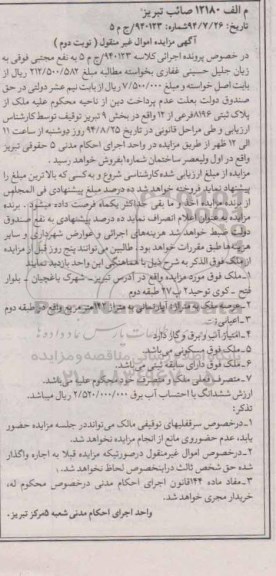 م الف ۱۲۱۸۰ صائب تبریز
تاریخ: ۹۴/۷/۲۶ شماره: ۹۴۰۱۲۳/ج م ۵
آگهی مزایده اموال غیر منقول ( نوبت دوم )
در خصوص پرونده اجرائی کلاسه ۹۴۰۱۲۳/ج م ۵ به نفع مجتبی فوقی به
زیان جلیل حسینی غفاری بخواسته مطالبه مبلغ ۲۱۲/۵۰۰/۵۸۲ ریال از
بابت اصل خواسته و مبلغ ۷/۵۰۰/۰۰۰ ریال از بابت نیم عشر دولتی در حق
صندوق دولت بعلت عدم پرداخت دین از ناحیه محکوم علیه ملک از
پلاک ثبتی ۸۱۹۶ فرعی از ۱۲ واقع در بخش ۹ تبریز توقیف توسط کارشناس
ارزیابی و طی مراحل قانونی در تاریخ ۹۴/۸/۲۵ روز دوشنبه از ساعت ۱۱
الی ۱۲ ظهر از طریق مزایده در واحد اجرای احکام مدنی ۵ حقوقی تبریز
واقع در اول ولیعصر ساختمان شماره ۱ بفروش خواهد رسید .
مزایده از مبلغ ارزیابی شده کارشناسی شروع و به کسی که بالاترین مبلغ را
پیشنهاد نماید فروخته خواهد شد ده درصد مبلغ پیشنهادی فی المجلس
از برنده مزایده اخذ و ما بقی حداکثر یکماه فرصت داده میشود . برنده
مزایده به عنوان اعلام انصراف نماید ده درصد پیشنهادی به نفع صندوق
دولت ضبط خواهد شد هزینه‌های اجرائی و عوارض شهرداری و سایر
هزینه‌ها طبق مقررات خواهد بود. طالبین می‌توانند پنج روز قبل از مزایده
از ملک فوق الذکر به شرح ذیل با هماهنگی این واحد بازدید نمایند
۱-ملک فوق مورد مزایده واقع در آدرس تبریز- شهرک باغچیان - بلوار
فتح - کوی توحید ۲ پ ۲۷ طبقه دوم
۲-عرصه ملک به متراژ آپارتمانی به متراژ مترمربع واقع در طبقه دوم
۳-اعیانی:
۴-امتیاز آب و برق و گاز دارد
۵-ملک فوق مسکونی می‌باشد
۶-ملک فوق دارای سابقه ثبتی می‌باشد.
۷-متصرف فعلی ملک در متصرف خود محکوم علیه می‌باشد.
ارزش ششدانگ با احتساب آب برق ۲/۵۲۰/۰۰۰/۰۰۰ ریال میباشد.
تذکر:
۱-درخصوص سرقفلیهای توقیفی مالک می‌تواند در جلسه مزایده حضور
یابد، عدم حضور وی مانع از انجام مزایده نخواهد شد.
۲-درخصوص اموال غیرمنقول درصورتیکه مزایده قبلا به اجاره واگذار
شده حق شخص ثالث دراینخصوص لحاظ نخواهد شد.
۳-مفاد ماده ۱۴۴ قانون اجرای احکام مدنی درخصوص محکوم له،
خریدار مجری خواهد شد.
واحد اجرای احکام مدنی شعبه ۵ مرکز تبریز.